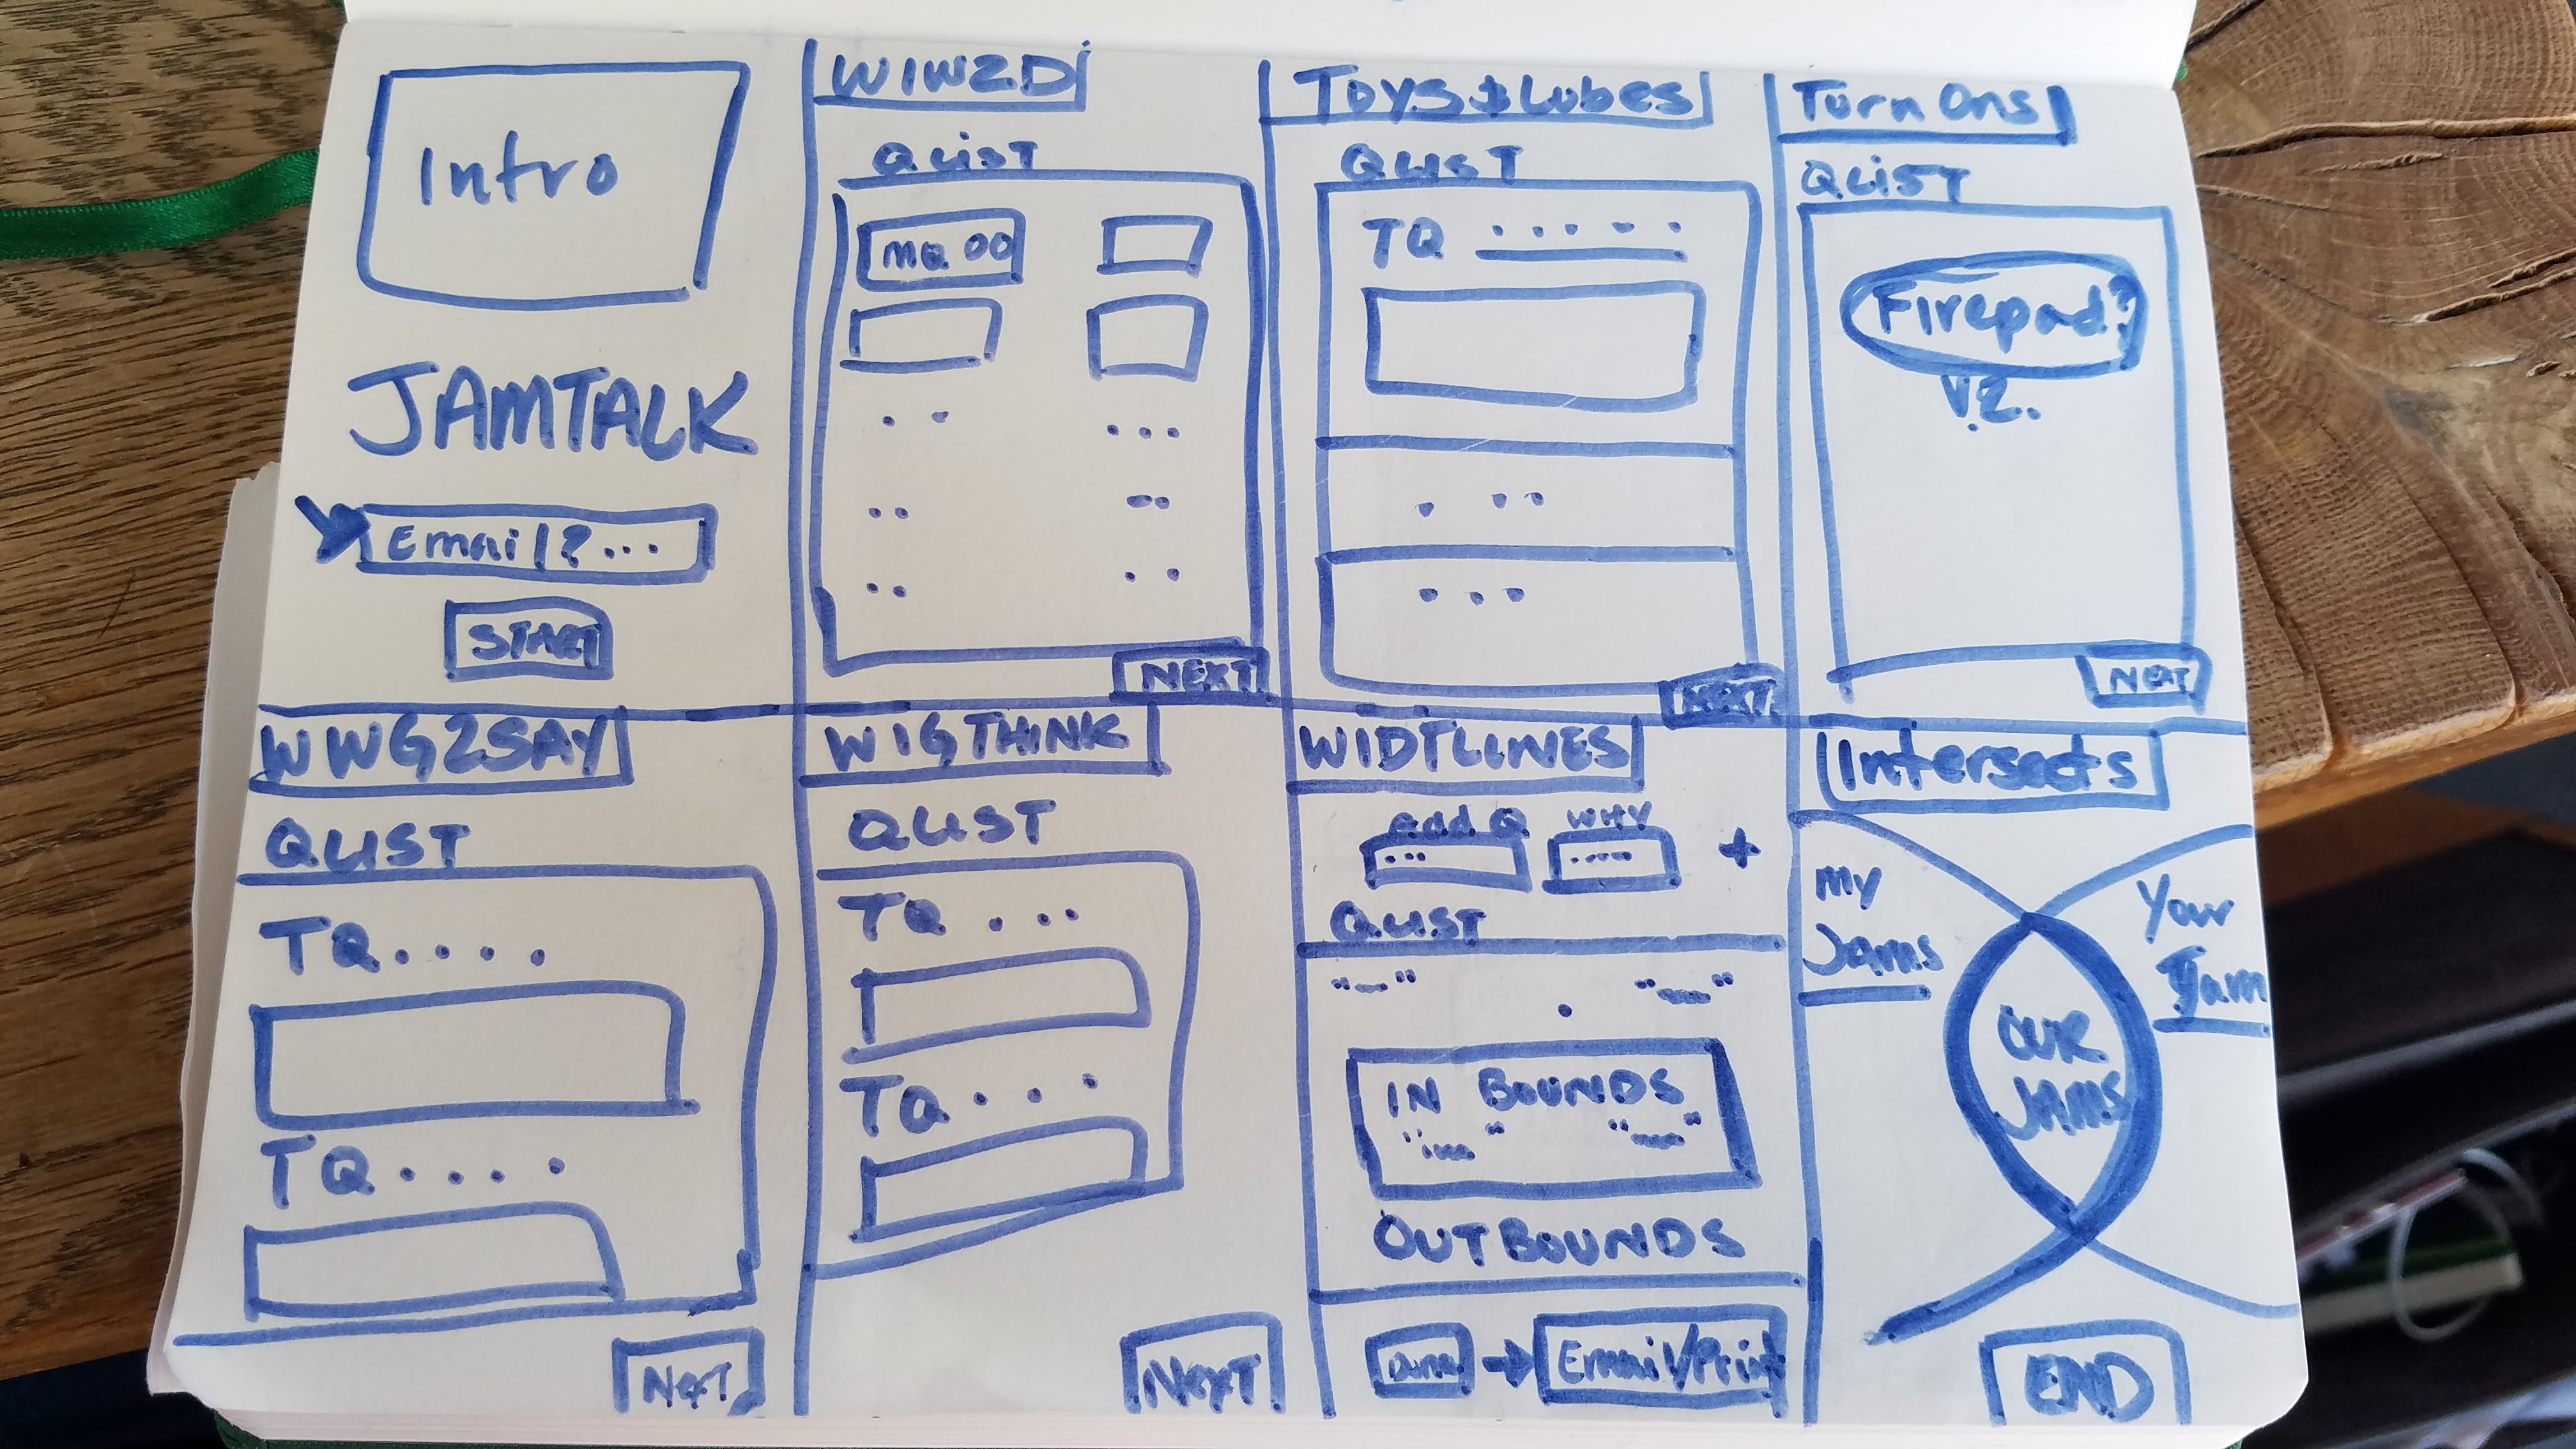 Intro
JAMTALK
Email?...
START
WIW2D
QLIST
MQ 00
NEXT
Toys & Lubes
QLIST
TQ .....
NEXT
Turn Ons
QLIST
Firepad?
V2.
NEXT
WWG2SAY
QLIST
TQ....
TQ....
NEXT
WIGTHINK
QLIST
TQ ...
TQ ...
NEXT
WIDTLINES
add Q WHY
... .... +
QLIST
IN BOUNDS
OUT BOUNDS
Done → Email/Print
Intersects
My
Jams
Your
Jam
OUR
JAMS
END